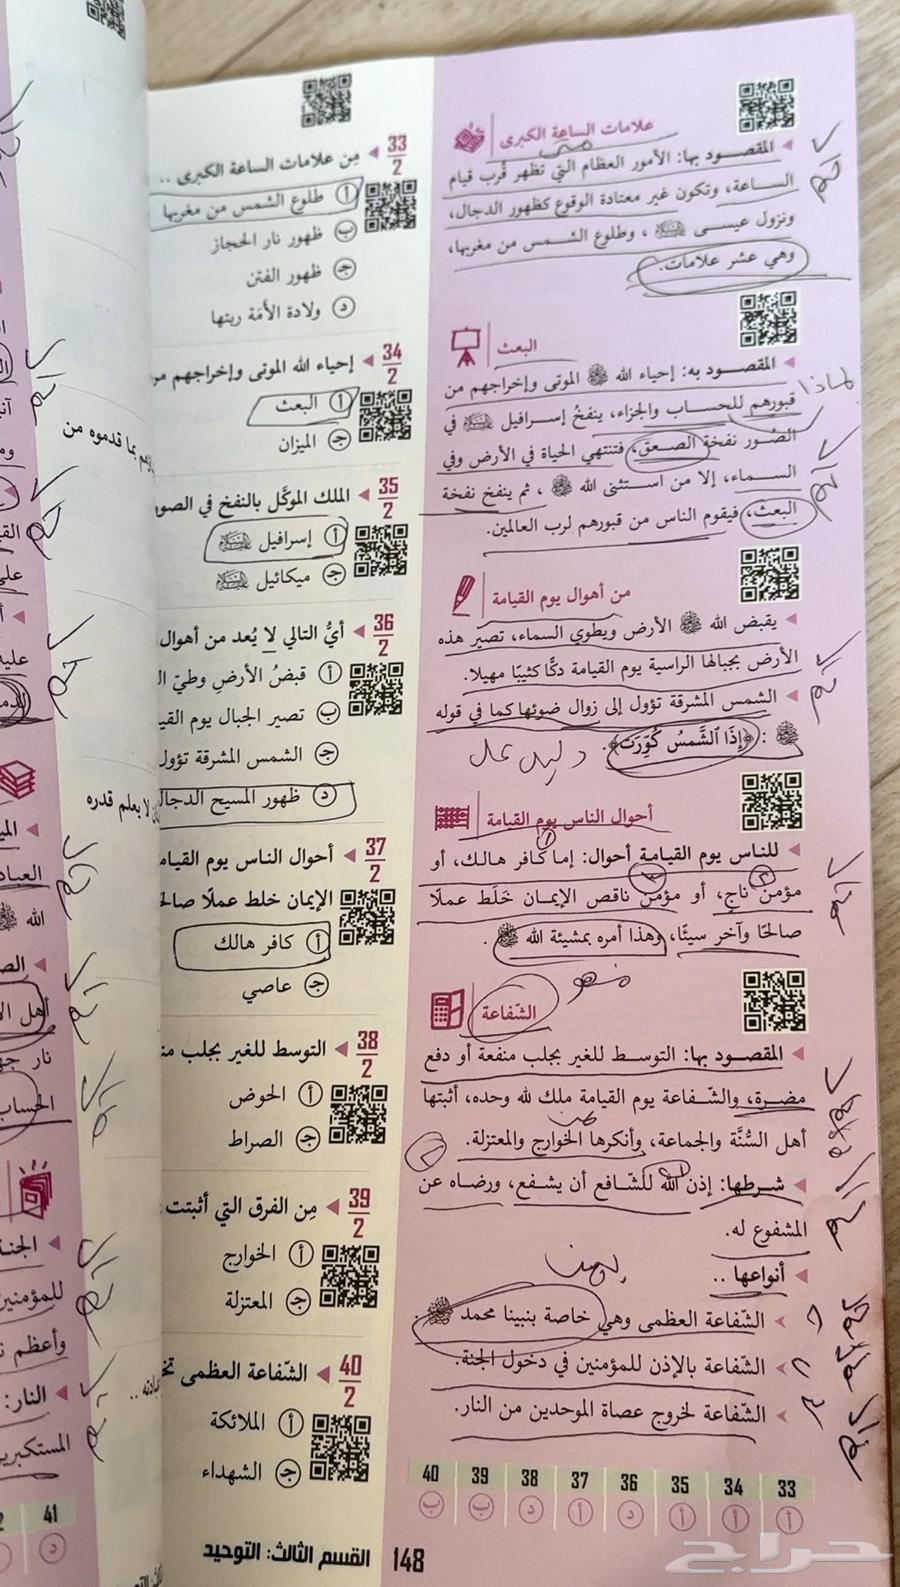 علامات الساعة الكبرى
المقصود بها: الأمور العظام التي تظهر قُرب قيام
الساعة، وتكون غير معتادة الوقوع كظهور الدجال،
ونزول عيسى ﷺ، وطلوع الشمس من مغربها،
وهي عشر علامات.
البعث
المقصود به: إحياء الله ﷻ الموتى وإخراجهم من
قبورهم للحساب والجزاء، ينفخُ إسرافيل في
الصُور نفخة الصعق، فتنتهي الحياة في الأرض وفي
السماء، إلا من استثنى الله ﷻ، ثم ينفخ نفخة
البعث، فيقوم الناس من قبورهم لرب العالمين.
لماذا
من أهوال يوم القيامة
يقبض الله ﷻ الأرض ويطوي السماء، تصير هذه
الأرض بجبالها الراسية يوم القيامة دكًّا كثيبًا مهيلا.
الشمس المشرقة تؤول إلى زوال ضوئها كما في قوله
ﷻ: ﴿إِذَا ٱلشَّمْسُ كُوِّرَتْ﴾.
دليل على
أحوال الناس يوم القيامة
للناس يوم القيامة أحوال: إما كافر هالك، أو
مؤمن ناجٍ، أو مؤمن ناقص الإيمان خَلَط عملًا
صالحًا وآخر سيئًا، وهذا أمره بمشيئة الله ﷻ.
الشفاعة
المقصود بها: التوسط للغير بجلب منفعة أو دفع
مضرة، والشفاعة يوم القيامة ملك لله وحده، أثبتها
أهل السُّنَّة والجماعة، وأنكرها الخوارج والمعتزلة.
شرطها: إذن الله للشافع أن يشفع، ورضاه عن
المشفوع له.
أنواعها ..
الشفاعة العظمى وهي خاصة بنبينا محمد ﷺ.
الشفاعة بالإذن للمؤمنين في دخول الجنة.
الشفاعة لخروج عصاة الموحدين من النار.
33 34 35 36 37 38 39 40
أ أ أ د أ د ب ب
33/2 مِن علامات الساعة الكبرى ..
أ طلوع الشمس من مغربها
ب ظهور نار الحجاز
ج ظهور الفتن
د ولادة الأَمَة ربتها
34/2 إحياء الله الموتى وإخراجهم
أ البعث
ج الميزان
35/2 الملك الموكَّل بالنفخ في الصور
أ إسرافيل
ج ميكائيل
36/2 أيُّ التالي لا يُعد من أهوال
أ قبضُ الأرضِ وطيّ
ب تصير الجبال يوم
ج الشمس المشرقة تؤول
د ظهور المسيح الدجال
37/2 أحوال الناس يوم
الإيمان خلط عملًا
أ كافر هالك
ج عاصي
38/2 التوسط للغير بجلب
أ الحوض
ج الصراط
39/2 مِن الفرق التي أثبتت
أ الخوارج
ج المعتزلة
40/2 الشفاعة العظمى
أ الملائكة
ج الشهداء
148 القسم الثالث: التوحيد
بما قدموه من
لا يعلم قدره
الله ﷻ
نار
الحساب
للمؤمنين
وأعظم
النار:
41
د
حراج